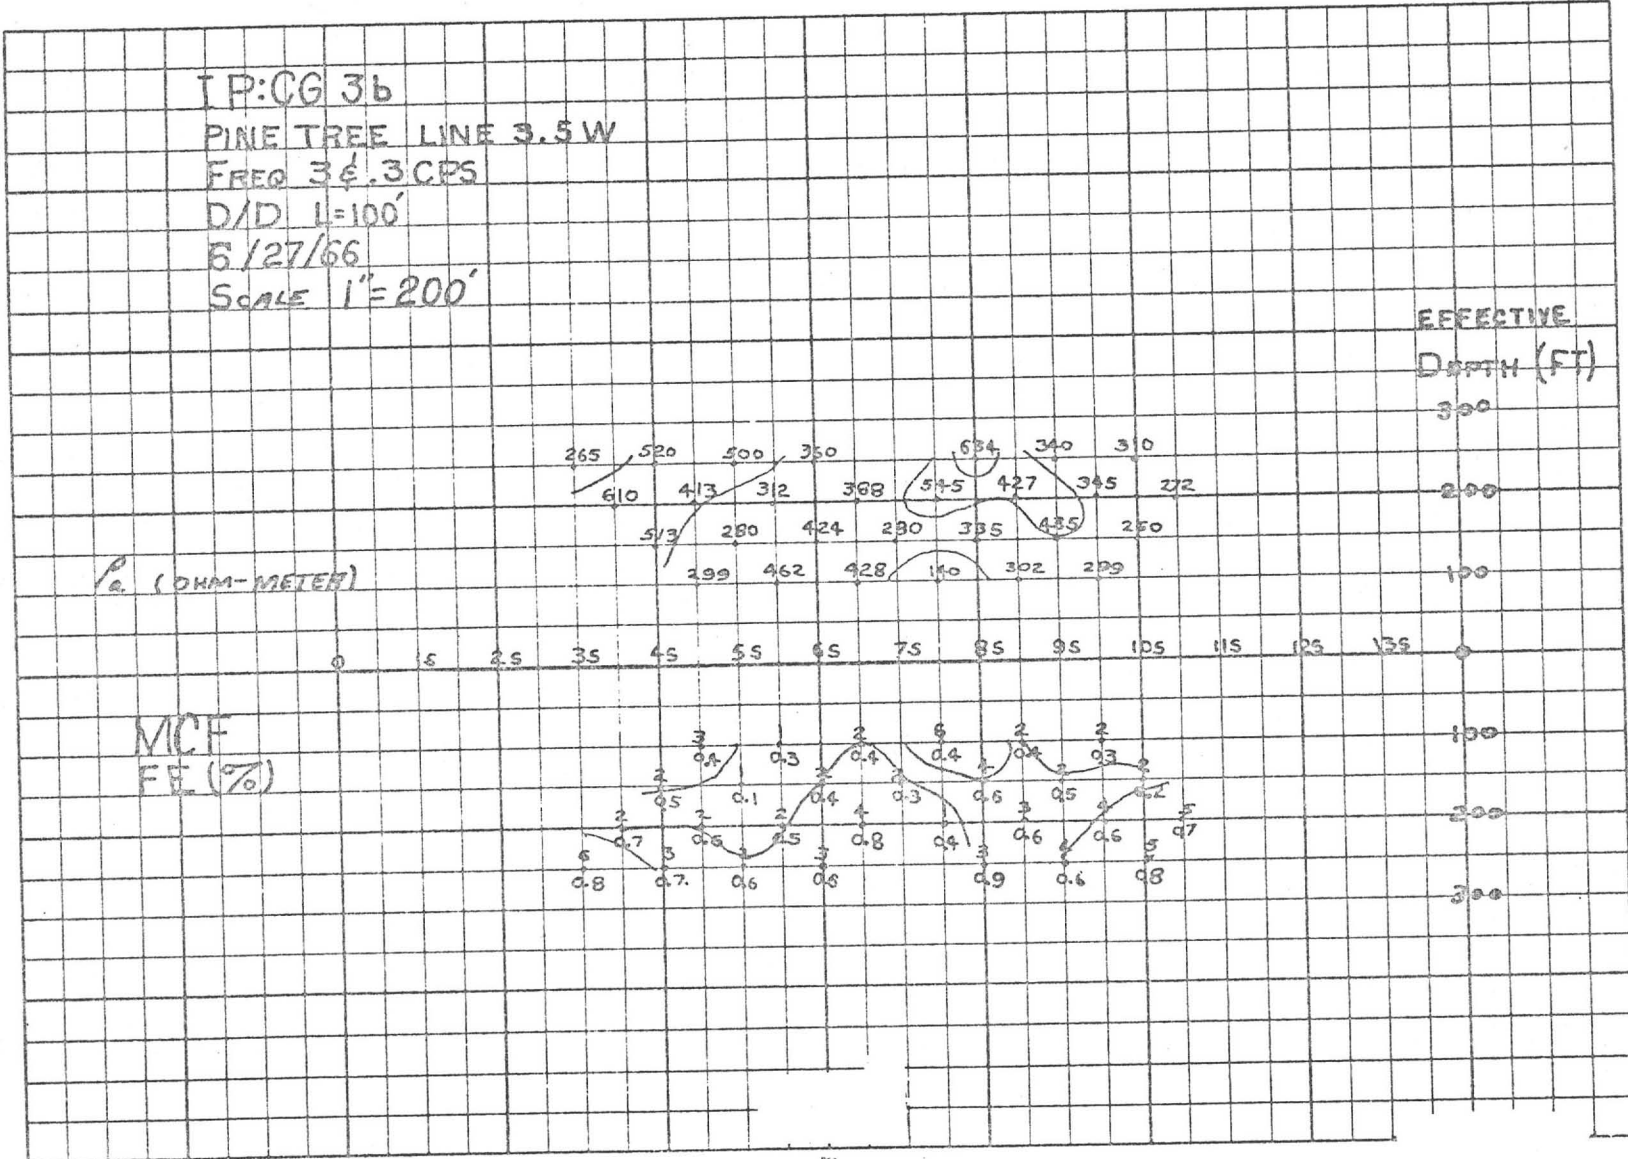 IP:CG 3b
PINE TREE LINE 3.5W
FREQ 3 & .3 CPS
D/D L=100'
6/27/66
SCALE 1"=200'
EFFECTIVE
DEPTH (FT)
300
265 520 500 350 634 340 310
610 413 312 368 545 427 345 272
200
513 280 424 230 335 435 250
ρa (OHM-METER)
299 462 428 140 302 299
100
0 1S 2S 3S 4S 5S 6S 7S 8S 9S 10S 11S 12S 13S 0
MCF
FE (%)
3 1 2 6 2 2
100
0.4 0.3 0.4 0.4 0.4 0.3
2 2 2 2 2
0.5 0.1 0.4 0.3 0.6 0.5
2 2 2 3
200
0.7 0.8 0.4 0.6 0.6 0.7
3 3 3 5
0.8 0.7 0.6 0.9 0.6 0.8
300